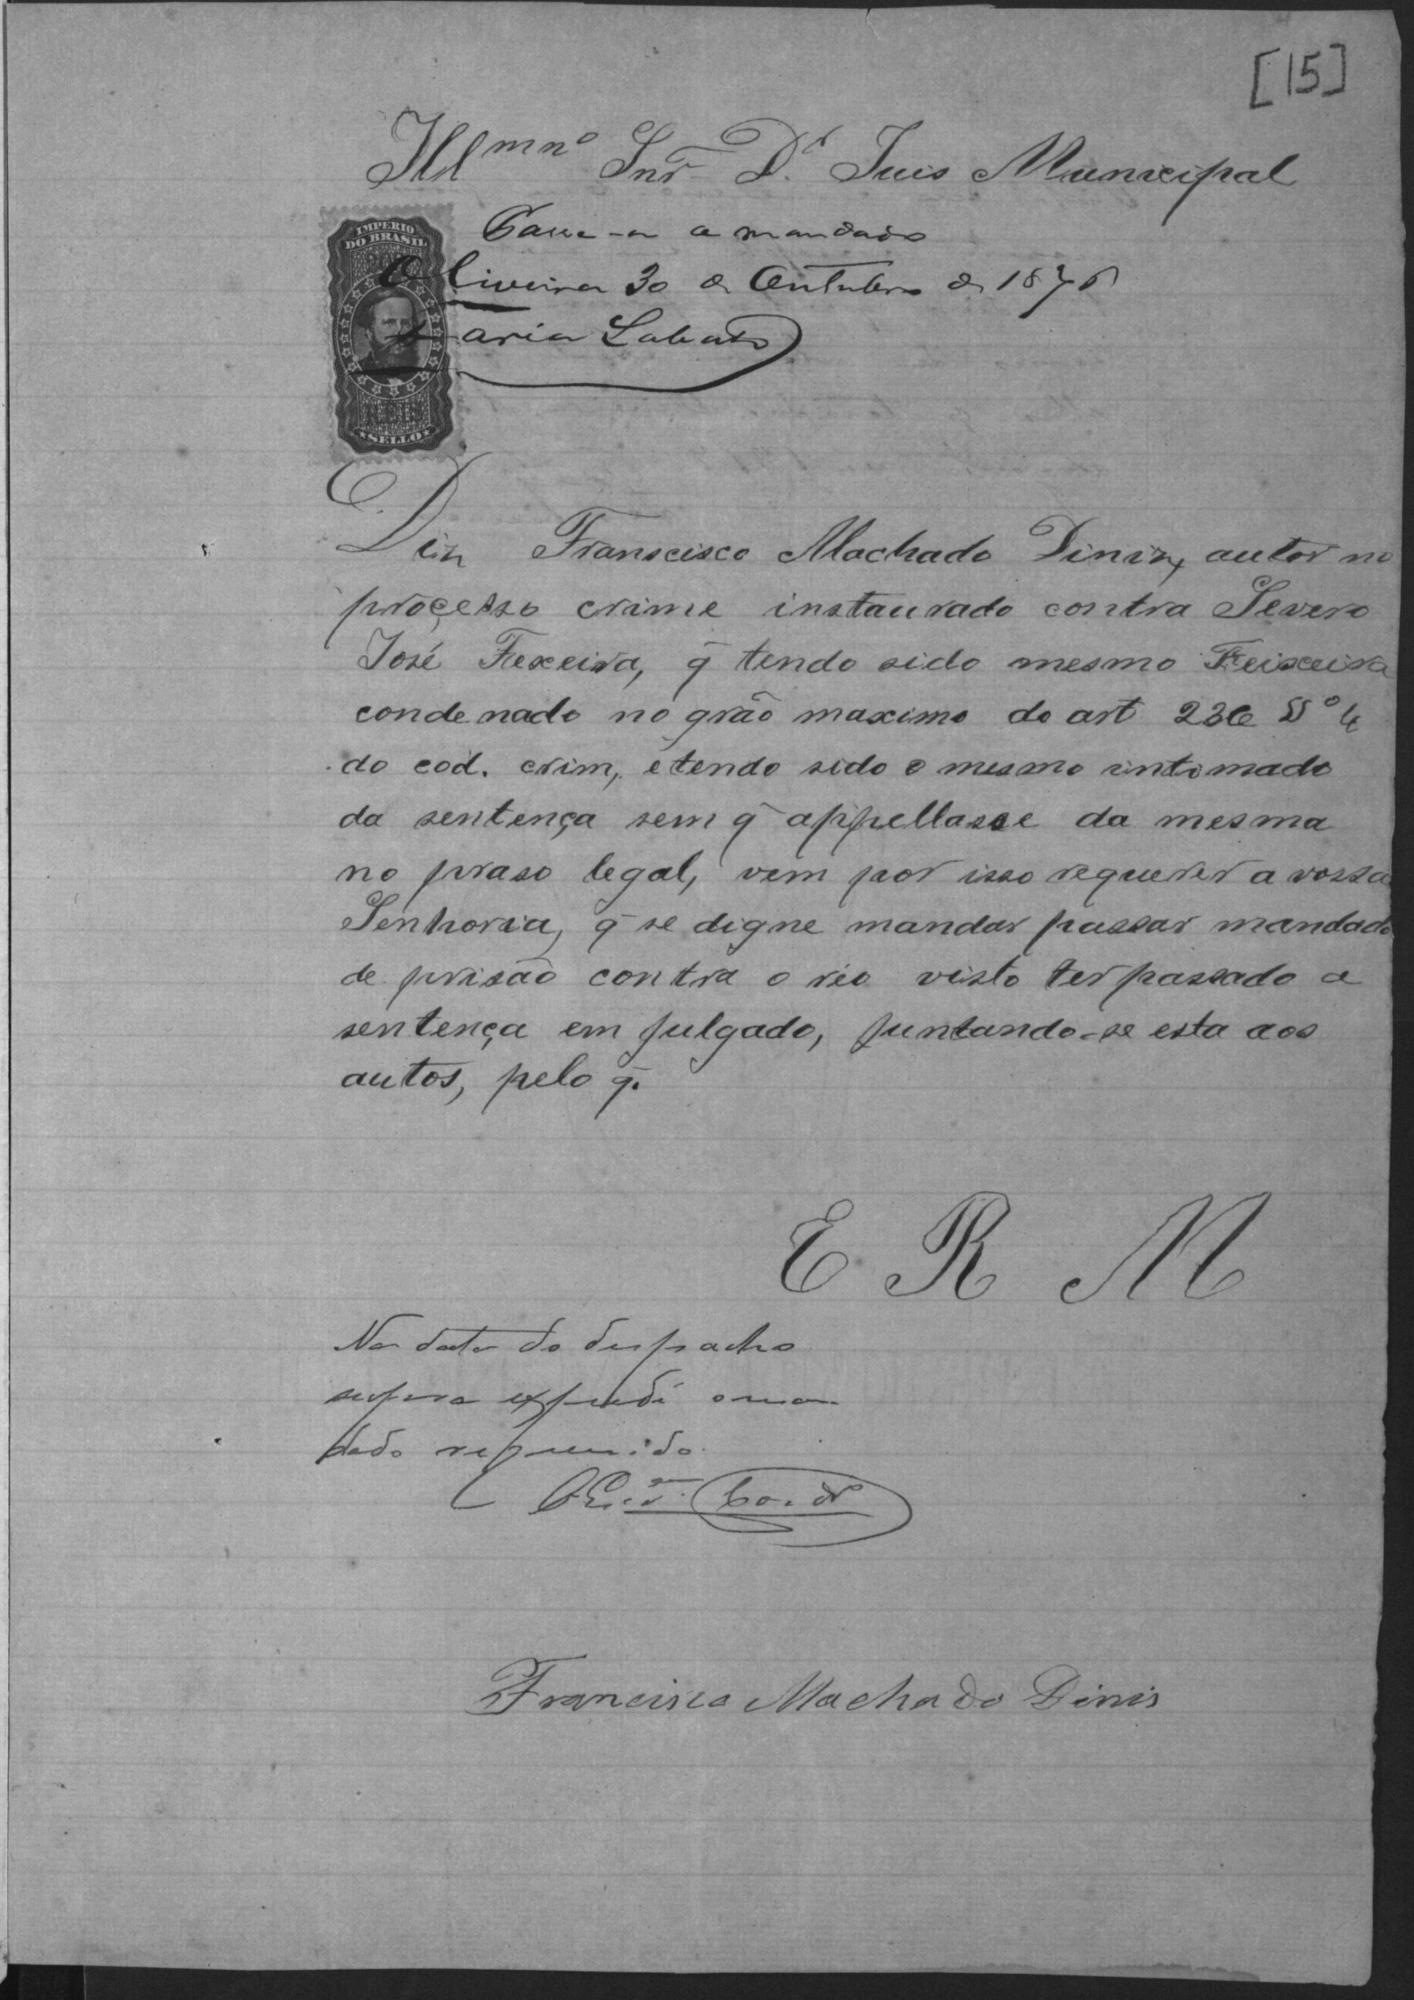 [15]
Illmnº Snr Dr. Juis Municipal
IMPERIO
DO BRASIL
SELLO
Passe-se o mandado
Oliveira 30 de Outubro de 1876
Faria Lobato
Diz Franscisco Machado Diniz, autor no
processo crime instaurado contra Severo
José Texeira, q̃ tendo sido mesmo Teixeira
condenado no gráo maximo do art 236 §º 4
do cod. crim, e tendo sido o mesmo intimado
da sentença sem q̃ appellasse da mesma
no praso legal, vem por isso requerer a vossa
Senhoria, q̃ se digne mandar passar mandado
de prisão contra o réo visto ter passado a
sentença em julgado, juntando-se esta aos
autos, pelo q̃.
E R M
Na data do despacho
supra expedi o man
dado requerido.
O Escram
Francisco Machado Dinis